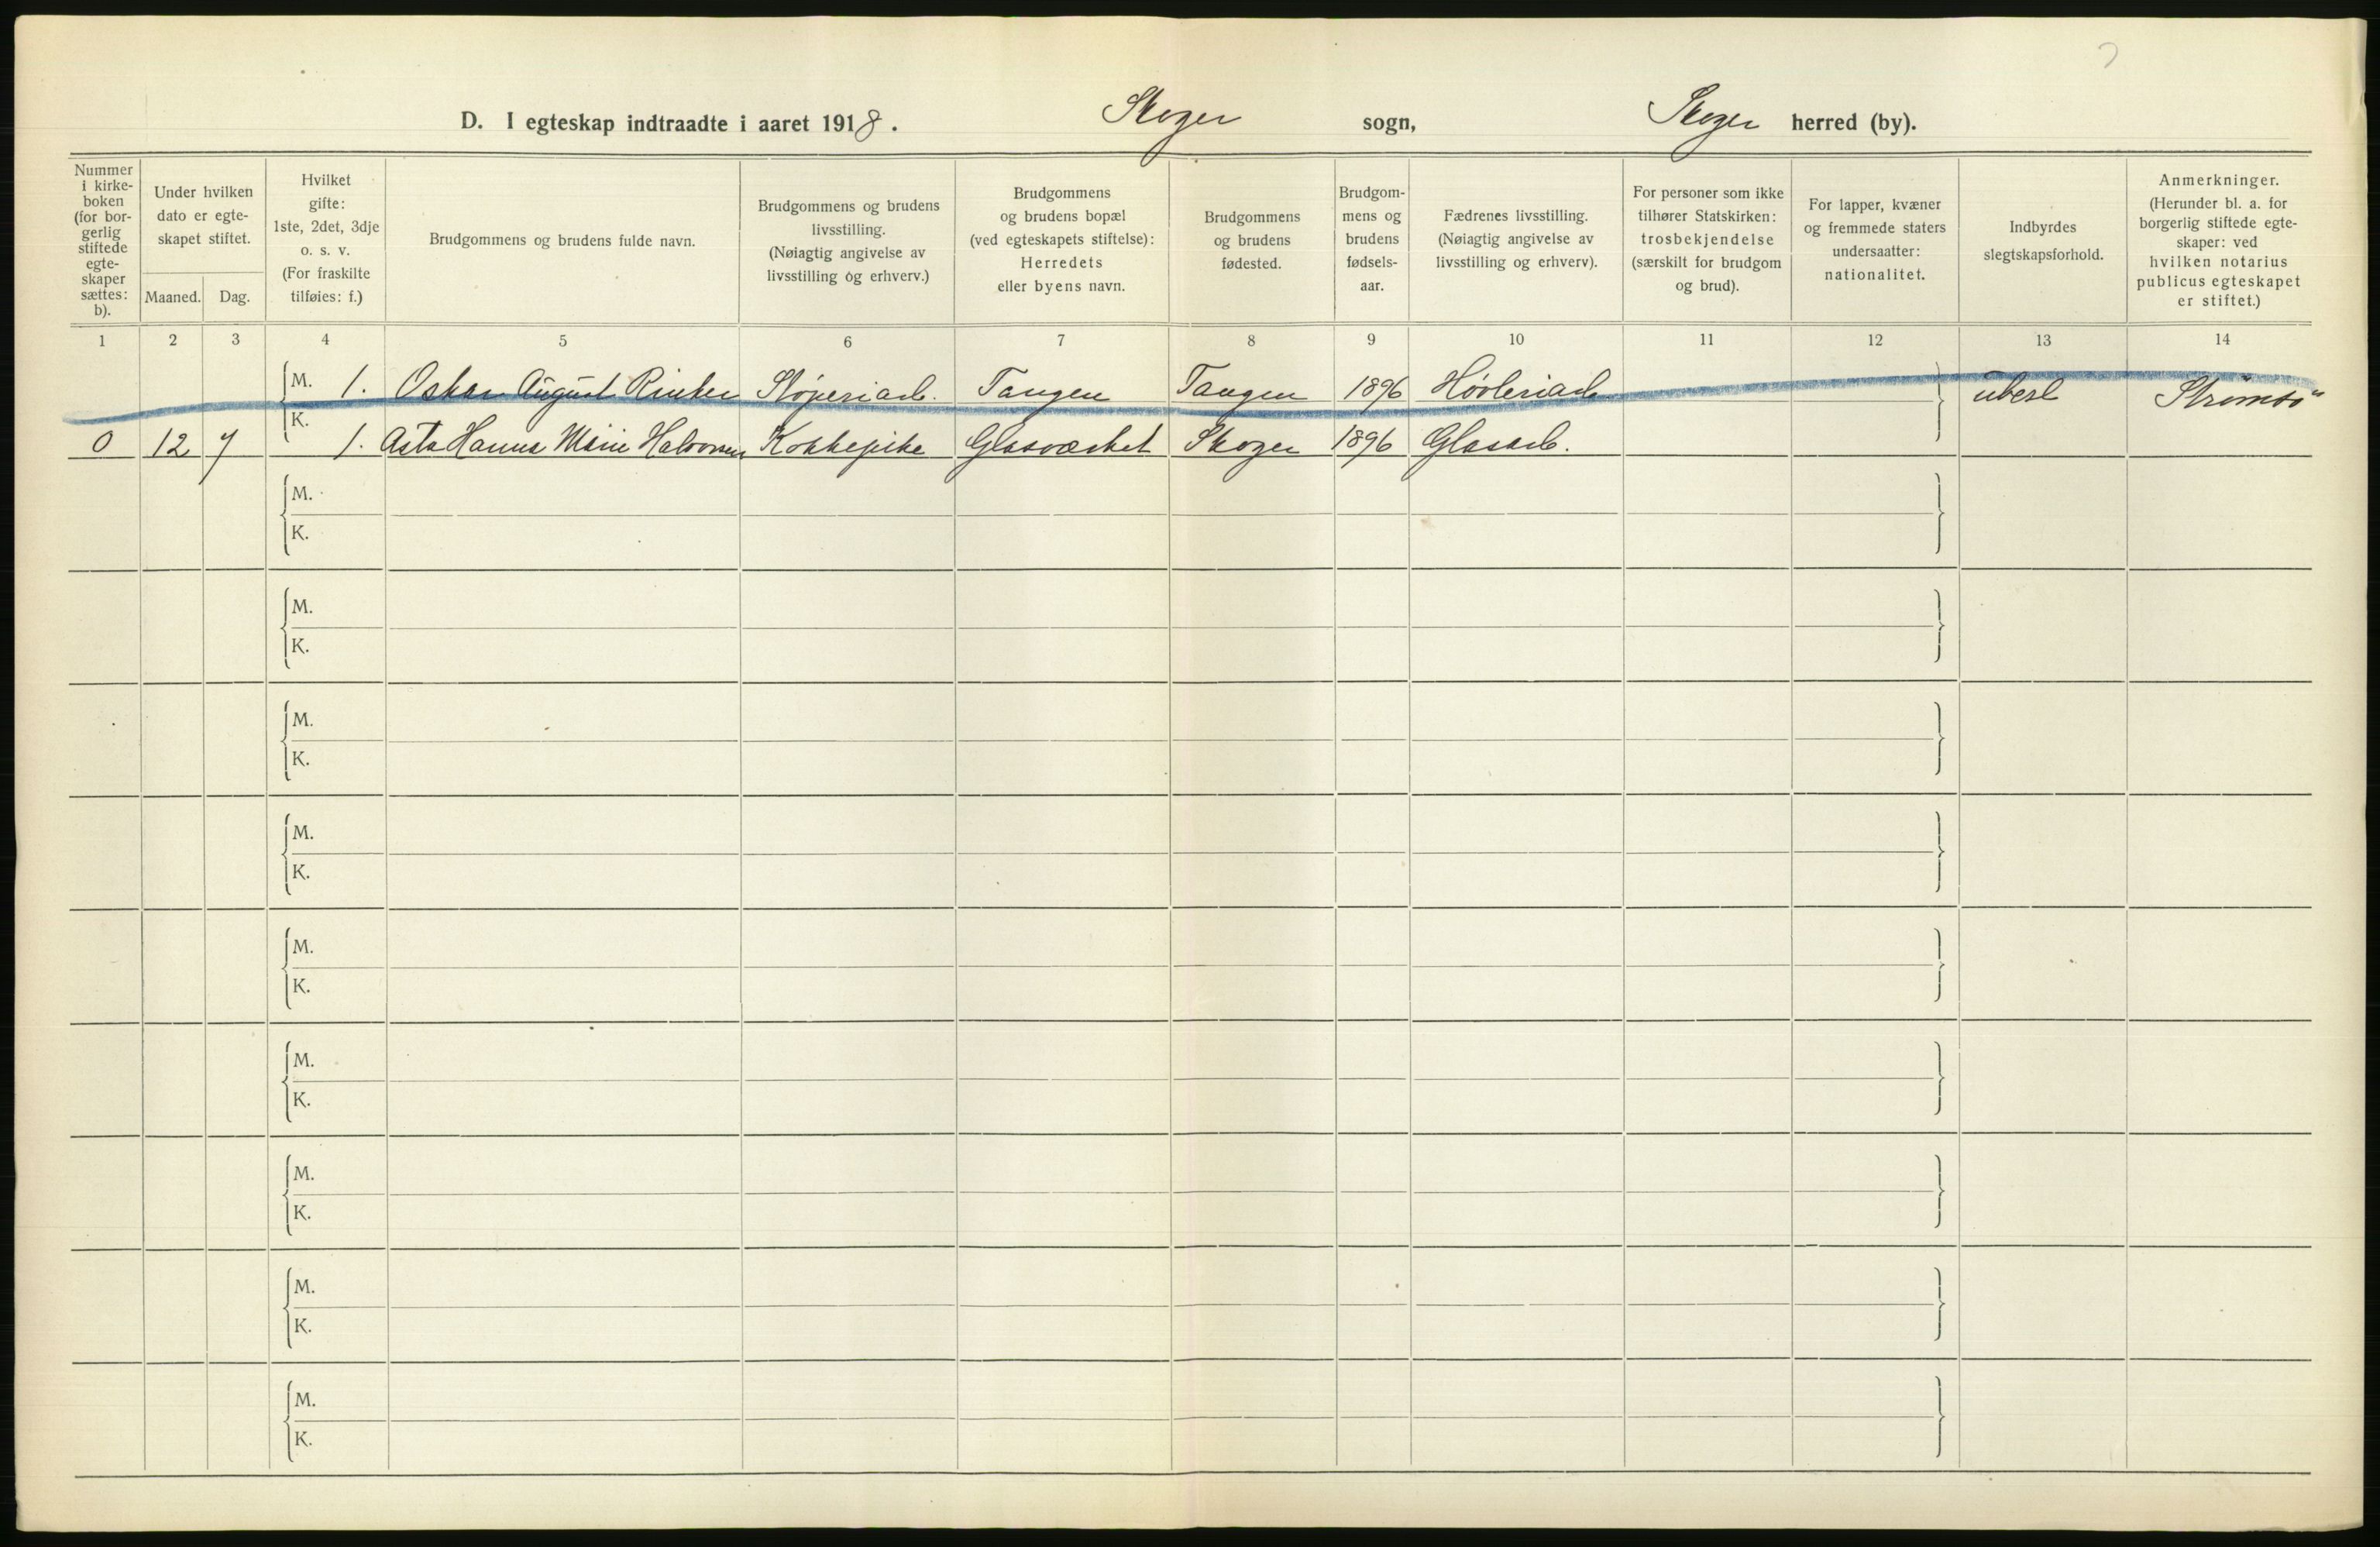 D. I egteskap indtraadte i aaret 1918. Skoger sogn, Skoger herred (by).
Nummer i kirke-boken (for bor-gerlig stiftede egte-skaper sættes: b).
Under hvilken dato er egte-skapet stiftet.
Maaned. Dag.
Hvilket gifte: 1ste, 2det, 3dje o. s. v. (For fraskilte tilføies: f.)
Brudgommens og brudens fulde navn.
Brudgommens og brudens livsstilling. (Nøiagtig angivelse av livsstilling og erhverv.)
Brudgommens og brudens bopæl (ved egteskapets stiftelse): Herredets eller byens navn.
Brudgommens og brudens fødested.
Brudgom-mens og brudens fødsels-aar.
Fædrenes livsstilling. (Nøiagtig angivelse av livsstilling og erhverv).
For personer som ikke tilhører Statskirken: trosbekjendelse (særskilt for brudgom og brud).
For lapper, kvæner og fremmede staters undersaatter: nationalitet.
Indbyrdes slegtskapsforhold.
Anmerkninger. (Herunder bl. a. for borgerlig stiftede egte-skaper: ved hvilken notarius publicus egteskapet er stiftet.)
1 2 3 4 5 6 7 8 9 10 11 12 13 14
M. 1. Oskar August Rinker Støperiarb. Tangen Tangen 1896 Høvleriarb ubesl Strømsø
0 12 7 K. 1. Asta Hanna Marie Halvorsen Kokkepike Glasværket Skoger 1896 Glasarb.
M.
K.
M.
K.
M.
K.
M.
K.
M.
K.
M.
K.
M.
K.
M.
K.
M.
K.